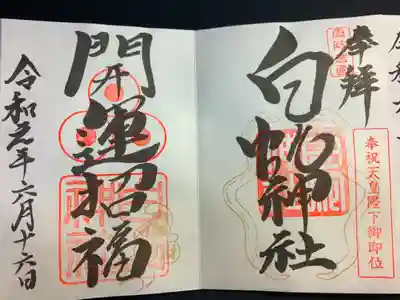 奉拝
白蛇神社
奉祝 天皇陛下御即位
開運招福
令和元年六月十六日